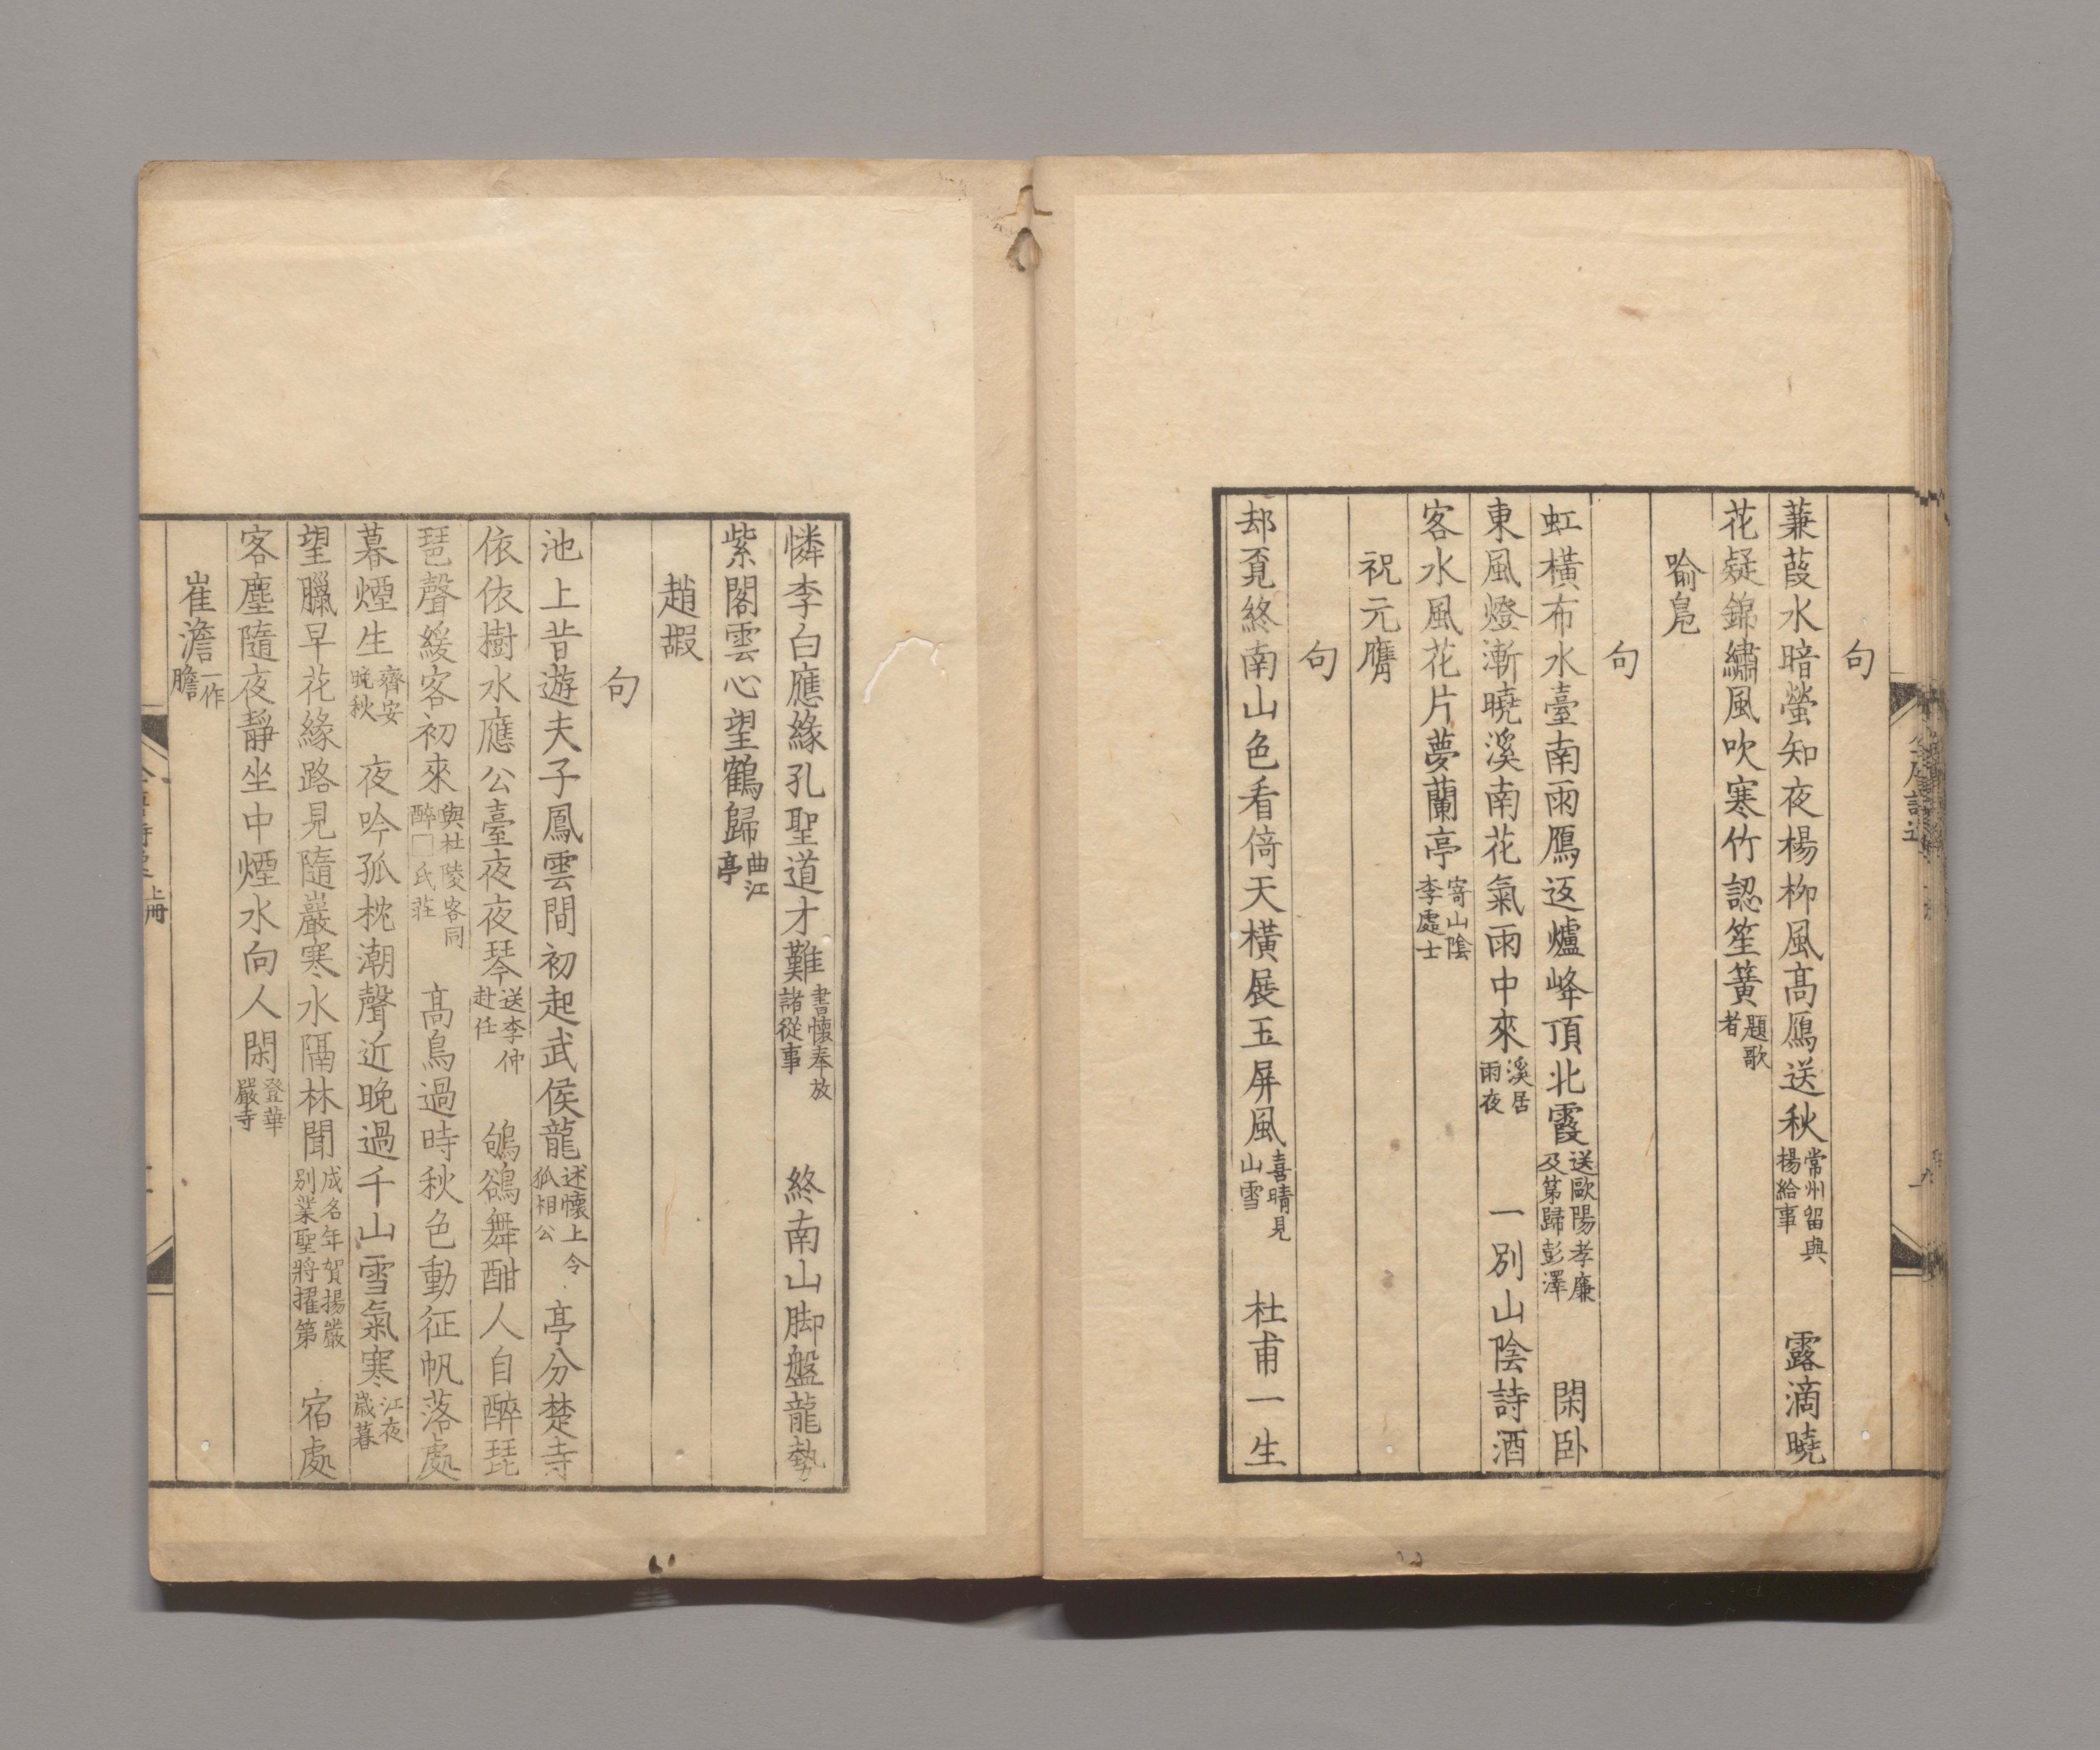 句
蒹葭水暗螢知夜楊柳風高鴈送秋常州留與楊給事　露滴曉
花疑錦繡風吹寒竹認笙簧題歌者
喻鳧
句
虹橫布水臺南雨鴈返爐峰頂北霞送歐陽孝廉及第歸彭澤　閑卧
東風燈漸曉溪南花氣雨中來溪居雨夜　一別山陰詩酒
客水風花片夢蘭亭寄山陰李處士
祝元膺
句
却覔終南山色看倚天橫展玉屏風喜晴見山雪　杜甫一生
憐李白應緣孔聖道才難書懷奉放諸從事　終南山脚盤龍勢
紫閣雲心望鶴歸曲江亭
趙嘏
句
池上昔遊夫子鳳雲間初起武侯龍述懷上令狐相公　亭分楚寺
依依樹水應公臺夜夜琴送李仲赴任　鴝鵒舞酣人自醉琵
琶聲緩客初來與杜陵客同醉□氏莊　高鳥過時秋色動征帆落處
暮煙生齊安晚秋　夜吟孤枕潮聲近晚過千山雪氣寒江夜歲暮
望臘早花緣路見隨巖寒水隔林聞成名年賀揚嚴別業聖將擢第　宿處
客塵隨夜靜坐中煙水向人閑登華嚴寺
崔澹一作膽
上冊